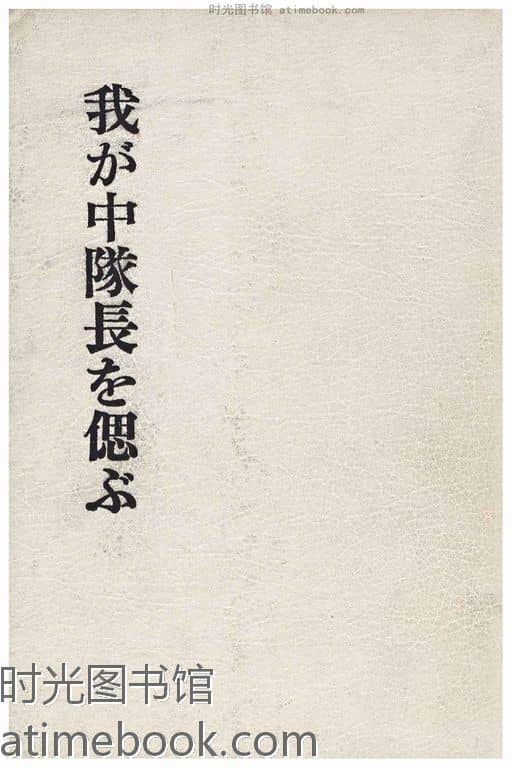 时光图书馆 atimebook.com
我が中隊長を偲ぶ
时光图书馆
atimebook.com